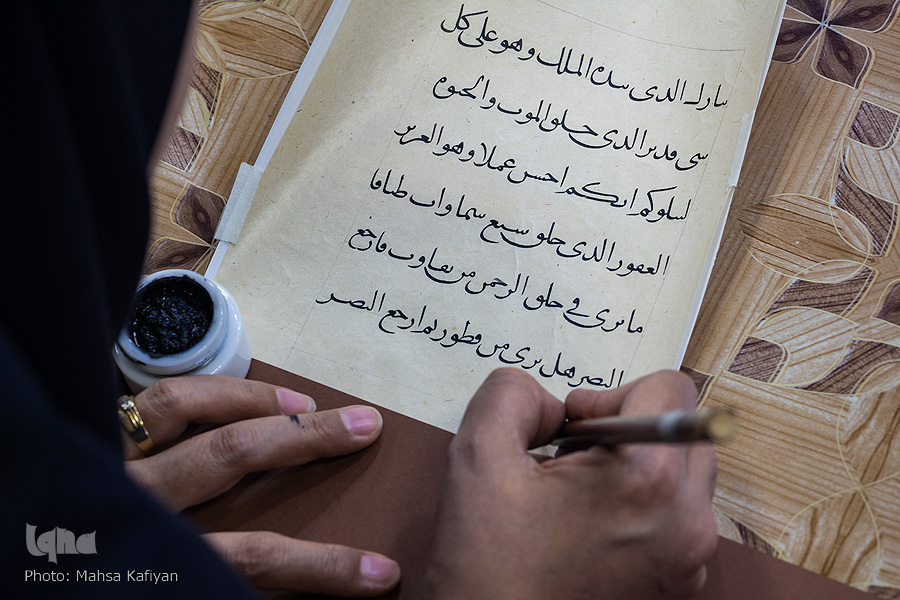 تبارك الذى بيده الملك وهو على كل
شى قدير الذى خلق الموت والحيوة
ليبلوكم ايكم احسن عملا وهو العزيز
الغفور الذى خلق سبع سماوات طباقا
ما ترى فى خلق الرحمن من تفاوت فارجع
البصر هل ترى من فطور ثم ارجع البصر
iqna
Photo: Mahsa Kafiyan